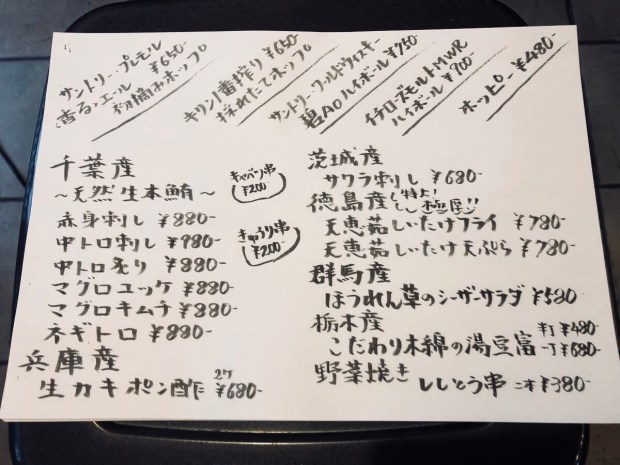 サントリー・プレモル
〈香る〉エール ¥650-
初摘みホップ
キリン一番搾り ¥650-
採れたてホップ
サントリー・ワールドウイスキー
碧Aoハイボール ¥750-
イチローズモルトMWR
ハイボール ¥700-
ホッピー ¥480-
千葉産
〜天然生本鮪〜
赤身刺し ¥880-
中トロ刺し ¥980-
中トロ炙り ¥880-
マグロユッケ ¥880-
マグロキムチ ¥880-
ネギトロ ¥880-
兵庫産
生カキポン酢 2ケ ¥680-
キャベツ串
¥200-
きゅうり串
¥200-
茨城産
サワラ刺し ¥680-
徳島産 特大! 極厚!!
天恵茹しいたけフライ ¥780-
天恵茹しいたけ天ぷら ¥780-
群馬産
ほうれん草のシーザーサラダ ¥580-
栃木産
こだわり木綿の湯豆富 半丁 ¥480-
一丁 ¥680-
野菜焼き
ししとう串 二本 ¥380-